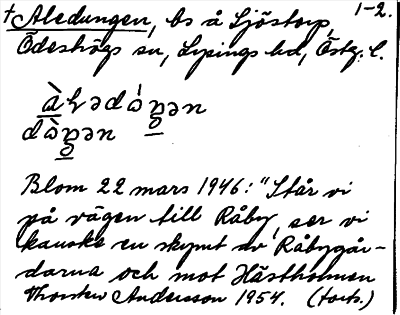 †Aledungen, bs å Sjöstorp, 1-2.
Ödeshögs sn, Lysings hd, Östg. l.
Blom 22 mars 1946: "Står vi
på vägen till Råby, ser vi
kanske en skymt av Råbygår-
darna och mot Hästholmen
Thorsten Andersson 1954. (forts.)